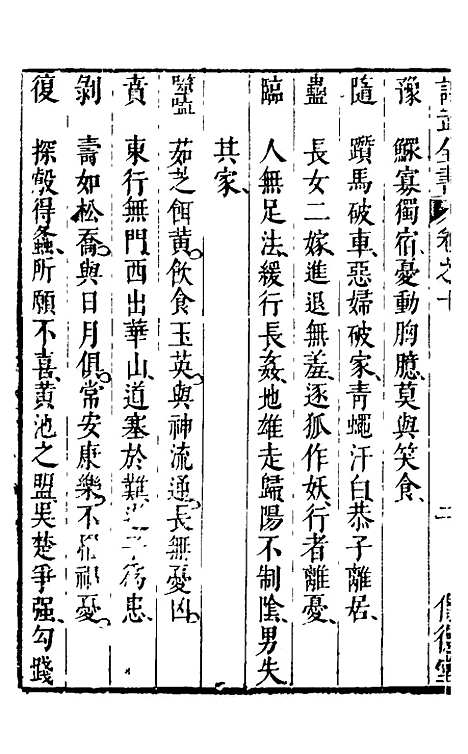 卷之十
二
豫 鰥寡獨宿憂動胸臆莫與笑食
隨 躓馬破車惡婦破家青蠅汙白恭子離居
蠱 長女二嫁進退無羞逐狐作妖行者離憂
臨 人無足法緩行長姦地雄走歸陽不制陰男失
共家
噬嗑 茹芝餌黃飲食玉英與神流通長無憂凶
賁 東行無門西出華山道塞於難 子為患
剝 壽如松喬與日月俱常安康樂不罹禍憂
復 探鷇得螽所願不喜黃池之盟吳楚爭强勾踐